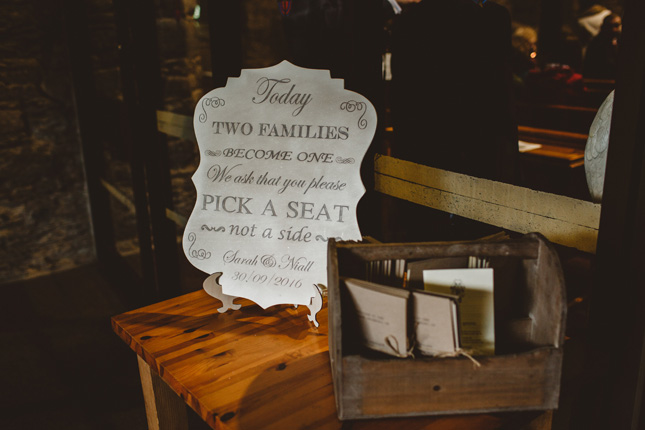 Today
TWO FAMILIES
BECOME ONE
We ask that you please
PICK A SEAT
not a side
Sarah & Niall
30/09/2016